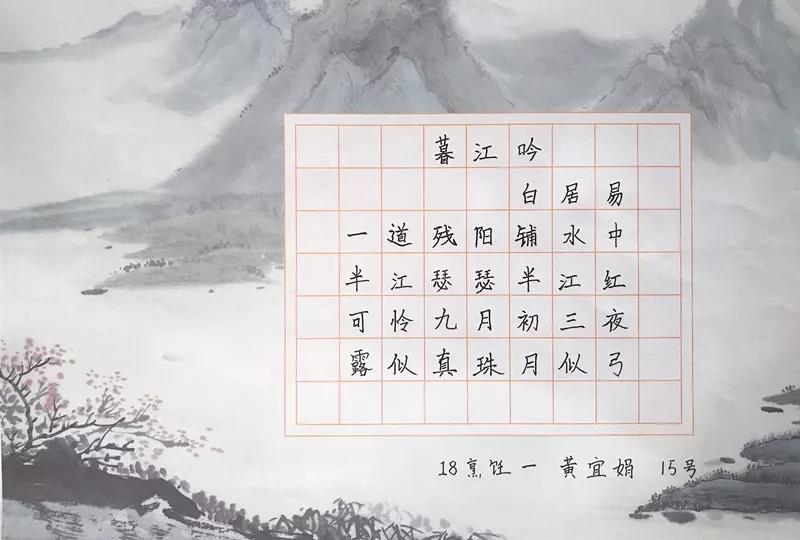 暮江吟
白居易
一道残阳铺水中
半江瑟瑟半江红
可怜九月初三夜
露似真珠月似弓
18烹饪一 黄宜娟 15号